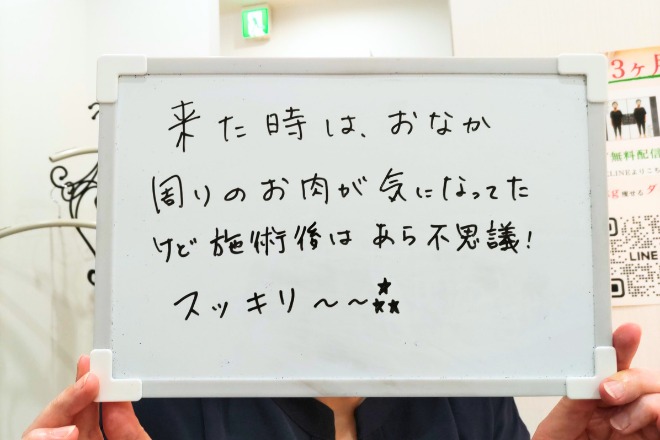 来た時は、おなか
周りのお肉が気になってた
けど施術後はあら不思議!
スッキリ〜〜★★★
3ヶ月
無料配信
LINEよりこち
痩せるダ
LINE